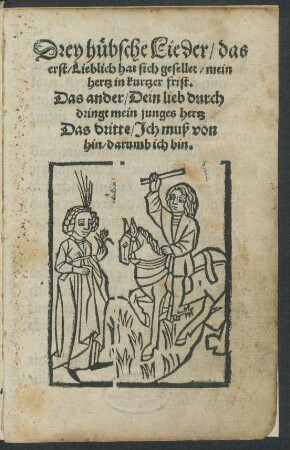 Drey hübsche Lieder / das
erst / Lieblich hat sich gesellet / mein
hertz in kurtzer frist.
Das ander / Dein lieb durch
dringt mein junges hertz
Das dritte / Ich muß von
hin / darumb ich bin.